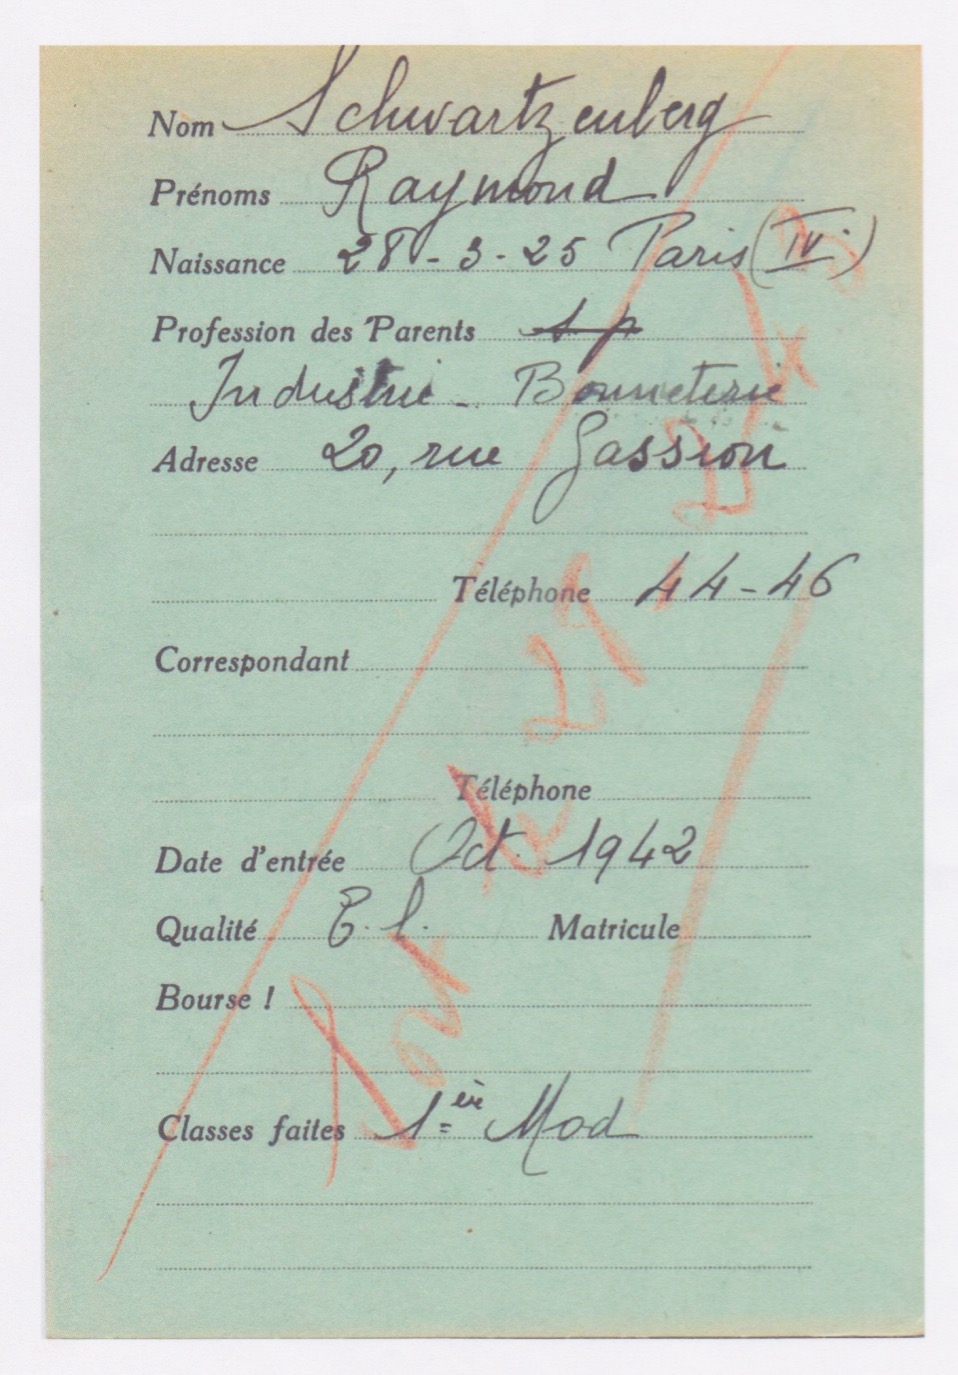 Nom Schwartzenberg
Prénoms Raymond
Naissance 28-3-25 Paris (IV)
Profession des Parents s p
Industrie - Bonneterie
Adresse 20, rue Gassion
Téléphone 44-46
Correspondant
Téléphone
Date d'entrée Oct. 1942
Qualité E. l. Matricule
Bourse !
Classes faites 1ère Mod